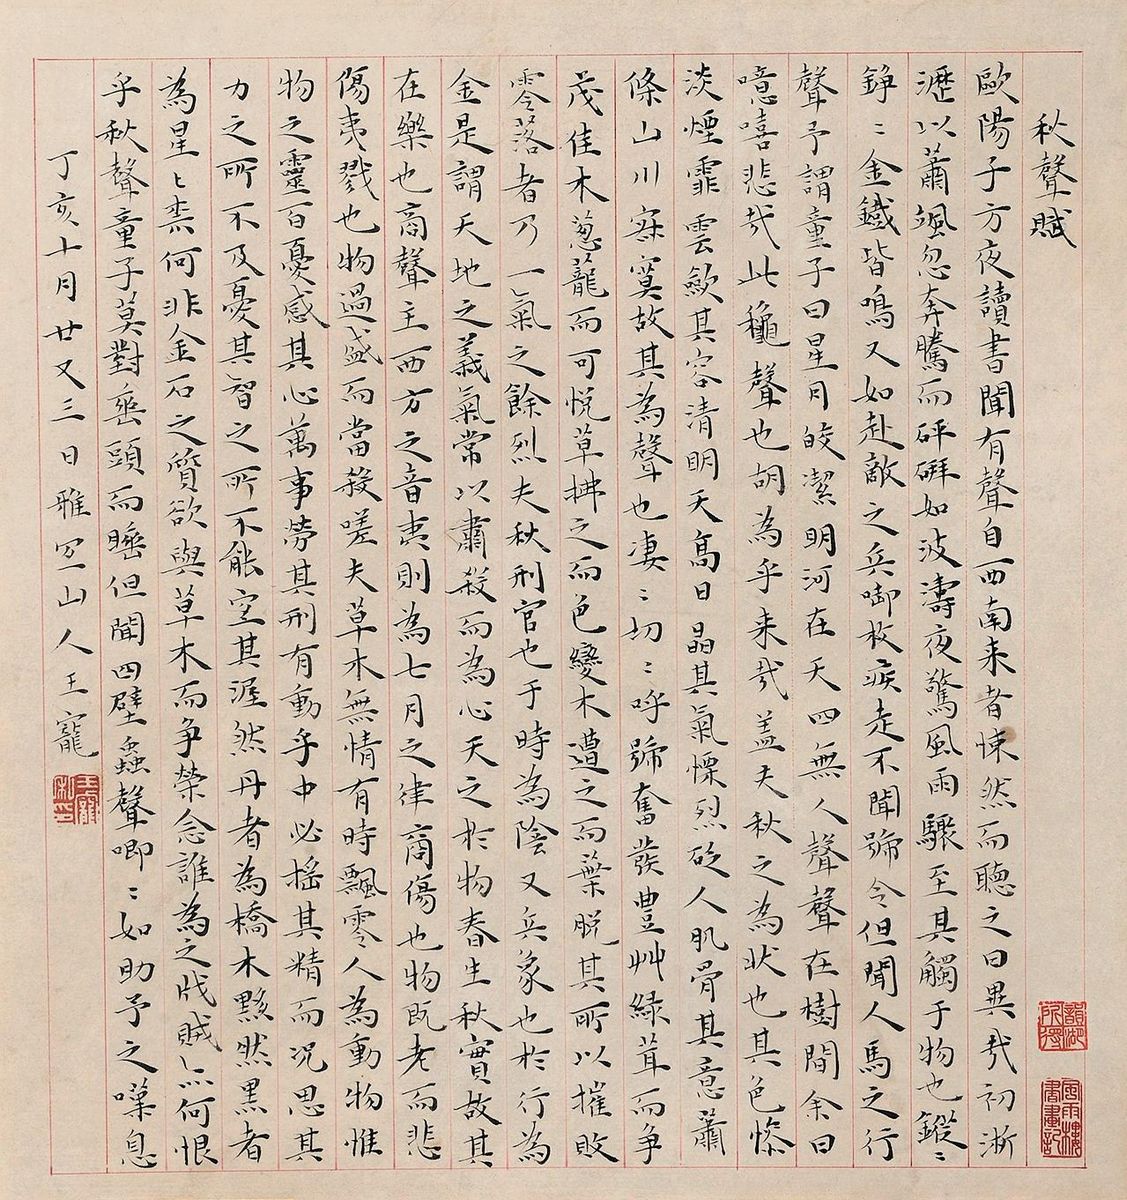 秋聲賦
歐陽子方夜讀書聞有聲自西南来者悚然而聽之曰異㦲初淅
瀝以蕭颯忽奔騰而砰磞如波濤夜驚風雨驟至其觸于物也鏦〻
錚〻金鐵皆鳴又如赴敵之兵啣枚疾走不聞號令但聞人馬之行
聲予謂童子曰星月皎潔明河在天四無人聲聲在樹間余曰
噫嘻悲㦲此龝聲也胡為乎来㦲盖夫秋之為狀也其色慘
淡煙霏雲歛其容清明天髙日晶其氣慄烈砭人肌骨其意蕭
條山川寂寞故其為聲也凄〻切〻呼號奮發豊艸緑茸而争
茂佳木葱蘢而可悦草拂之而色變木遭之而葉脱其所以摧敗
零落者乃一氣之餘烈夫秋刑官也于時為陰又兵象也於行為
金是謂天地之義氣常以肅殺而為心天之於物春生秋實故其
在樂也商聲主西方之音夷則為七月之律商傷也物既老而悲
傷夷戮也物過盛而當殺嗟夫草木無情有時飄零人為動物惟
物之靈百憂感其心萬事勞其刑有動乎中必揺其精而况思其
力之所不及憂其智之所不能宜其渥然丹者為槁木黟然黒者
為星〻柰何非金石之質欲與草木而争榮念誰為之戕賊亦何恨
乎秋聲童子莫對垂頭而睡但聞四壁蟲聲喞〻如助予之嘆息
丁亥十月廿又三日雅宜山人王寵
王寵私印
韻湖所得
風雨樓書畫記